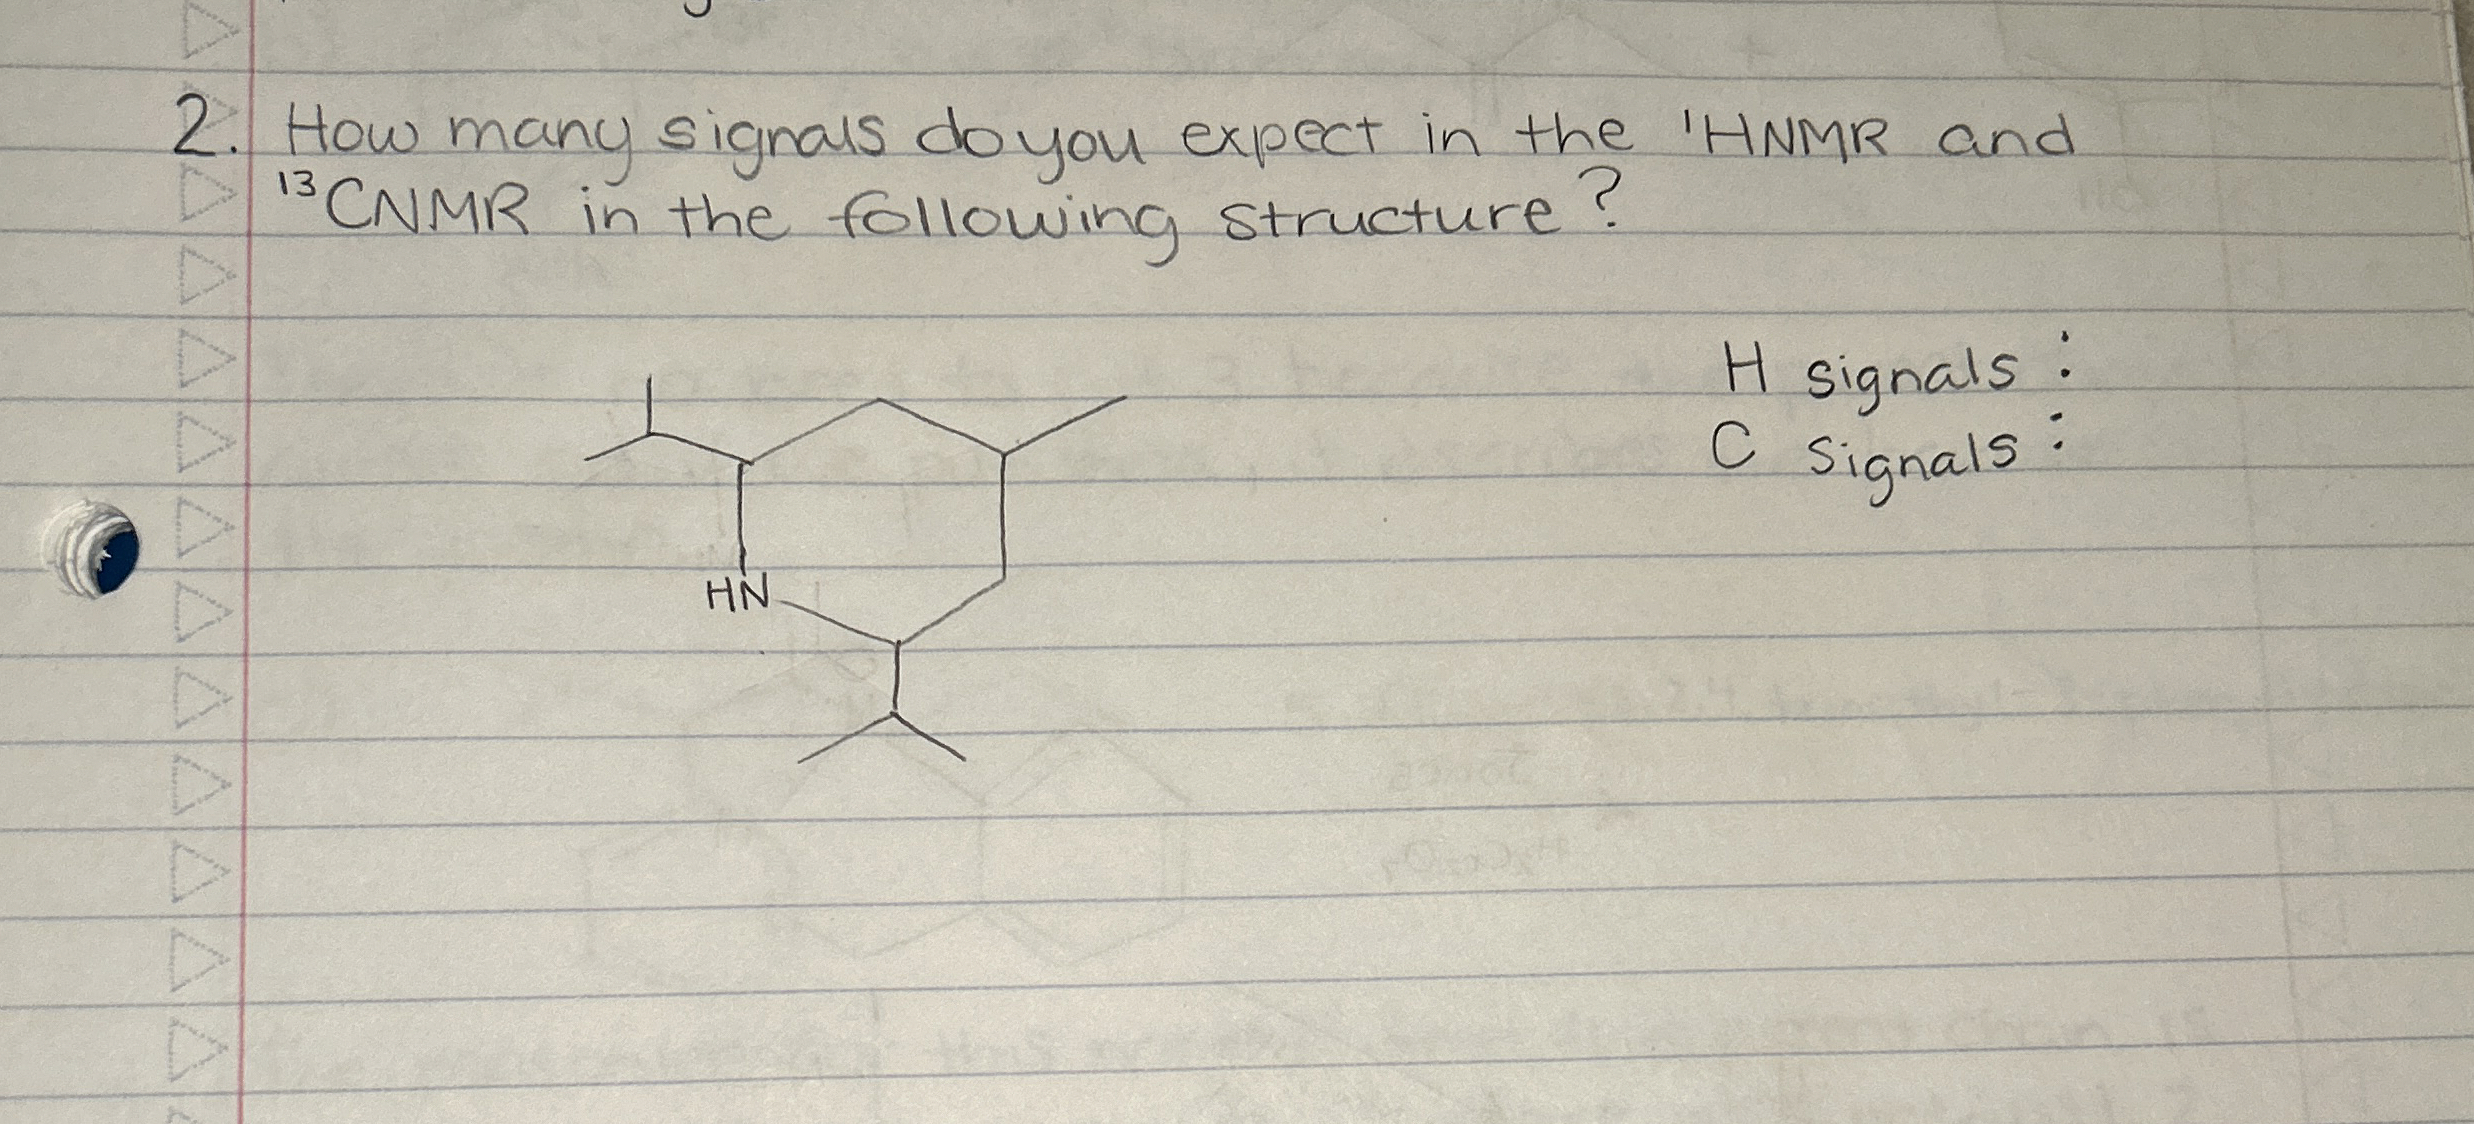 2. How many signals do you expect in the ¹HNMR and
¹³CNMR in the following structure?
H signals:
C signals:
HN